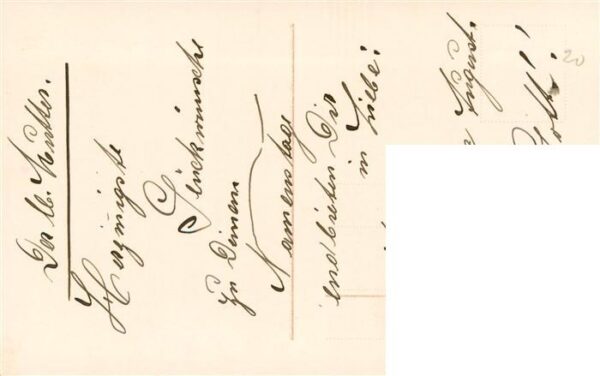 Der lb. Mutter.
Herzinnigste
Glückwünsche
zu Deinem
Namenstage
entbieten Dir
in Liebe:
August.